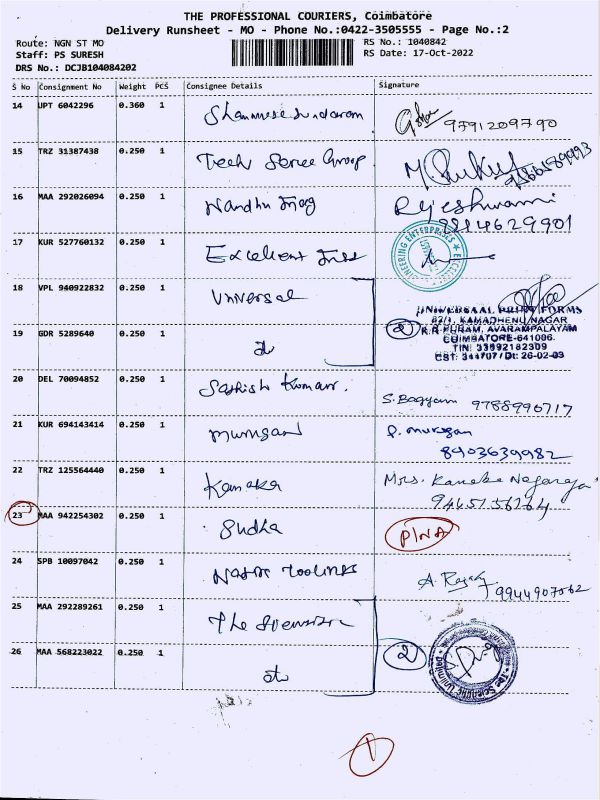 THE PROFESSIONAL COURIERS, Coimbatore
Delivery Runsheet - MO - Phone No.:0422-3505555 - Page No.:2
Route: NGN ST MO
RS No.: 1040842
Staff: PS SURESH
RS Date: 17-Oct-2022
DRS No.: DCJB104084202
S No Consignment No Weight PCS Consignee Details Signature
14 UPT 6042296 0.360 1
9791209790
15 TRZ 31387438 0.250 1 Tech Group
16 MAA 292026094 0.250 1 Nandhu
Rajeshwari
9814629901
17 KUR 527760132 0.250 1 Excellent
ENGINEERING ENTERPRISES
18 VPL 940922832 0.250 1 Universal
UNIVERSAAL PRINT FORMS
82/1, KAMADHENU NAGAR
19 GDR 5289640 0.250 1 do 2 K.R.PURAM, AVARAMPALAYAM
COIMBATORE-641006.
TIN: 33592182309
CST: 344707/Dt: 26-02-03
20 DEL 70094852 0.250 1 Sathish Kumar.
S. Bagyam 9788990717
21 KUR 694143414 0.250 1 Murugan P. Murugan
8903639982
22 TRZ 125564440 0.250 1 Kanaka Mrs. Kanaka Nagaraj
23 MAA 942254302 0.250 1 Sudha P/NA
24 SPB 10097042 0.250 1
9944907062
25 MAA 292289261 0.250 1 The
26 MAA 568223022 0.250 1 do 2
The Scientific Unlimited
1